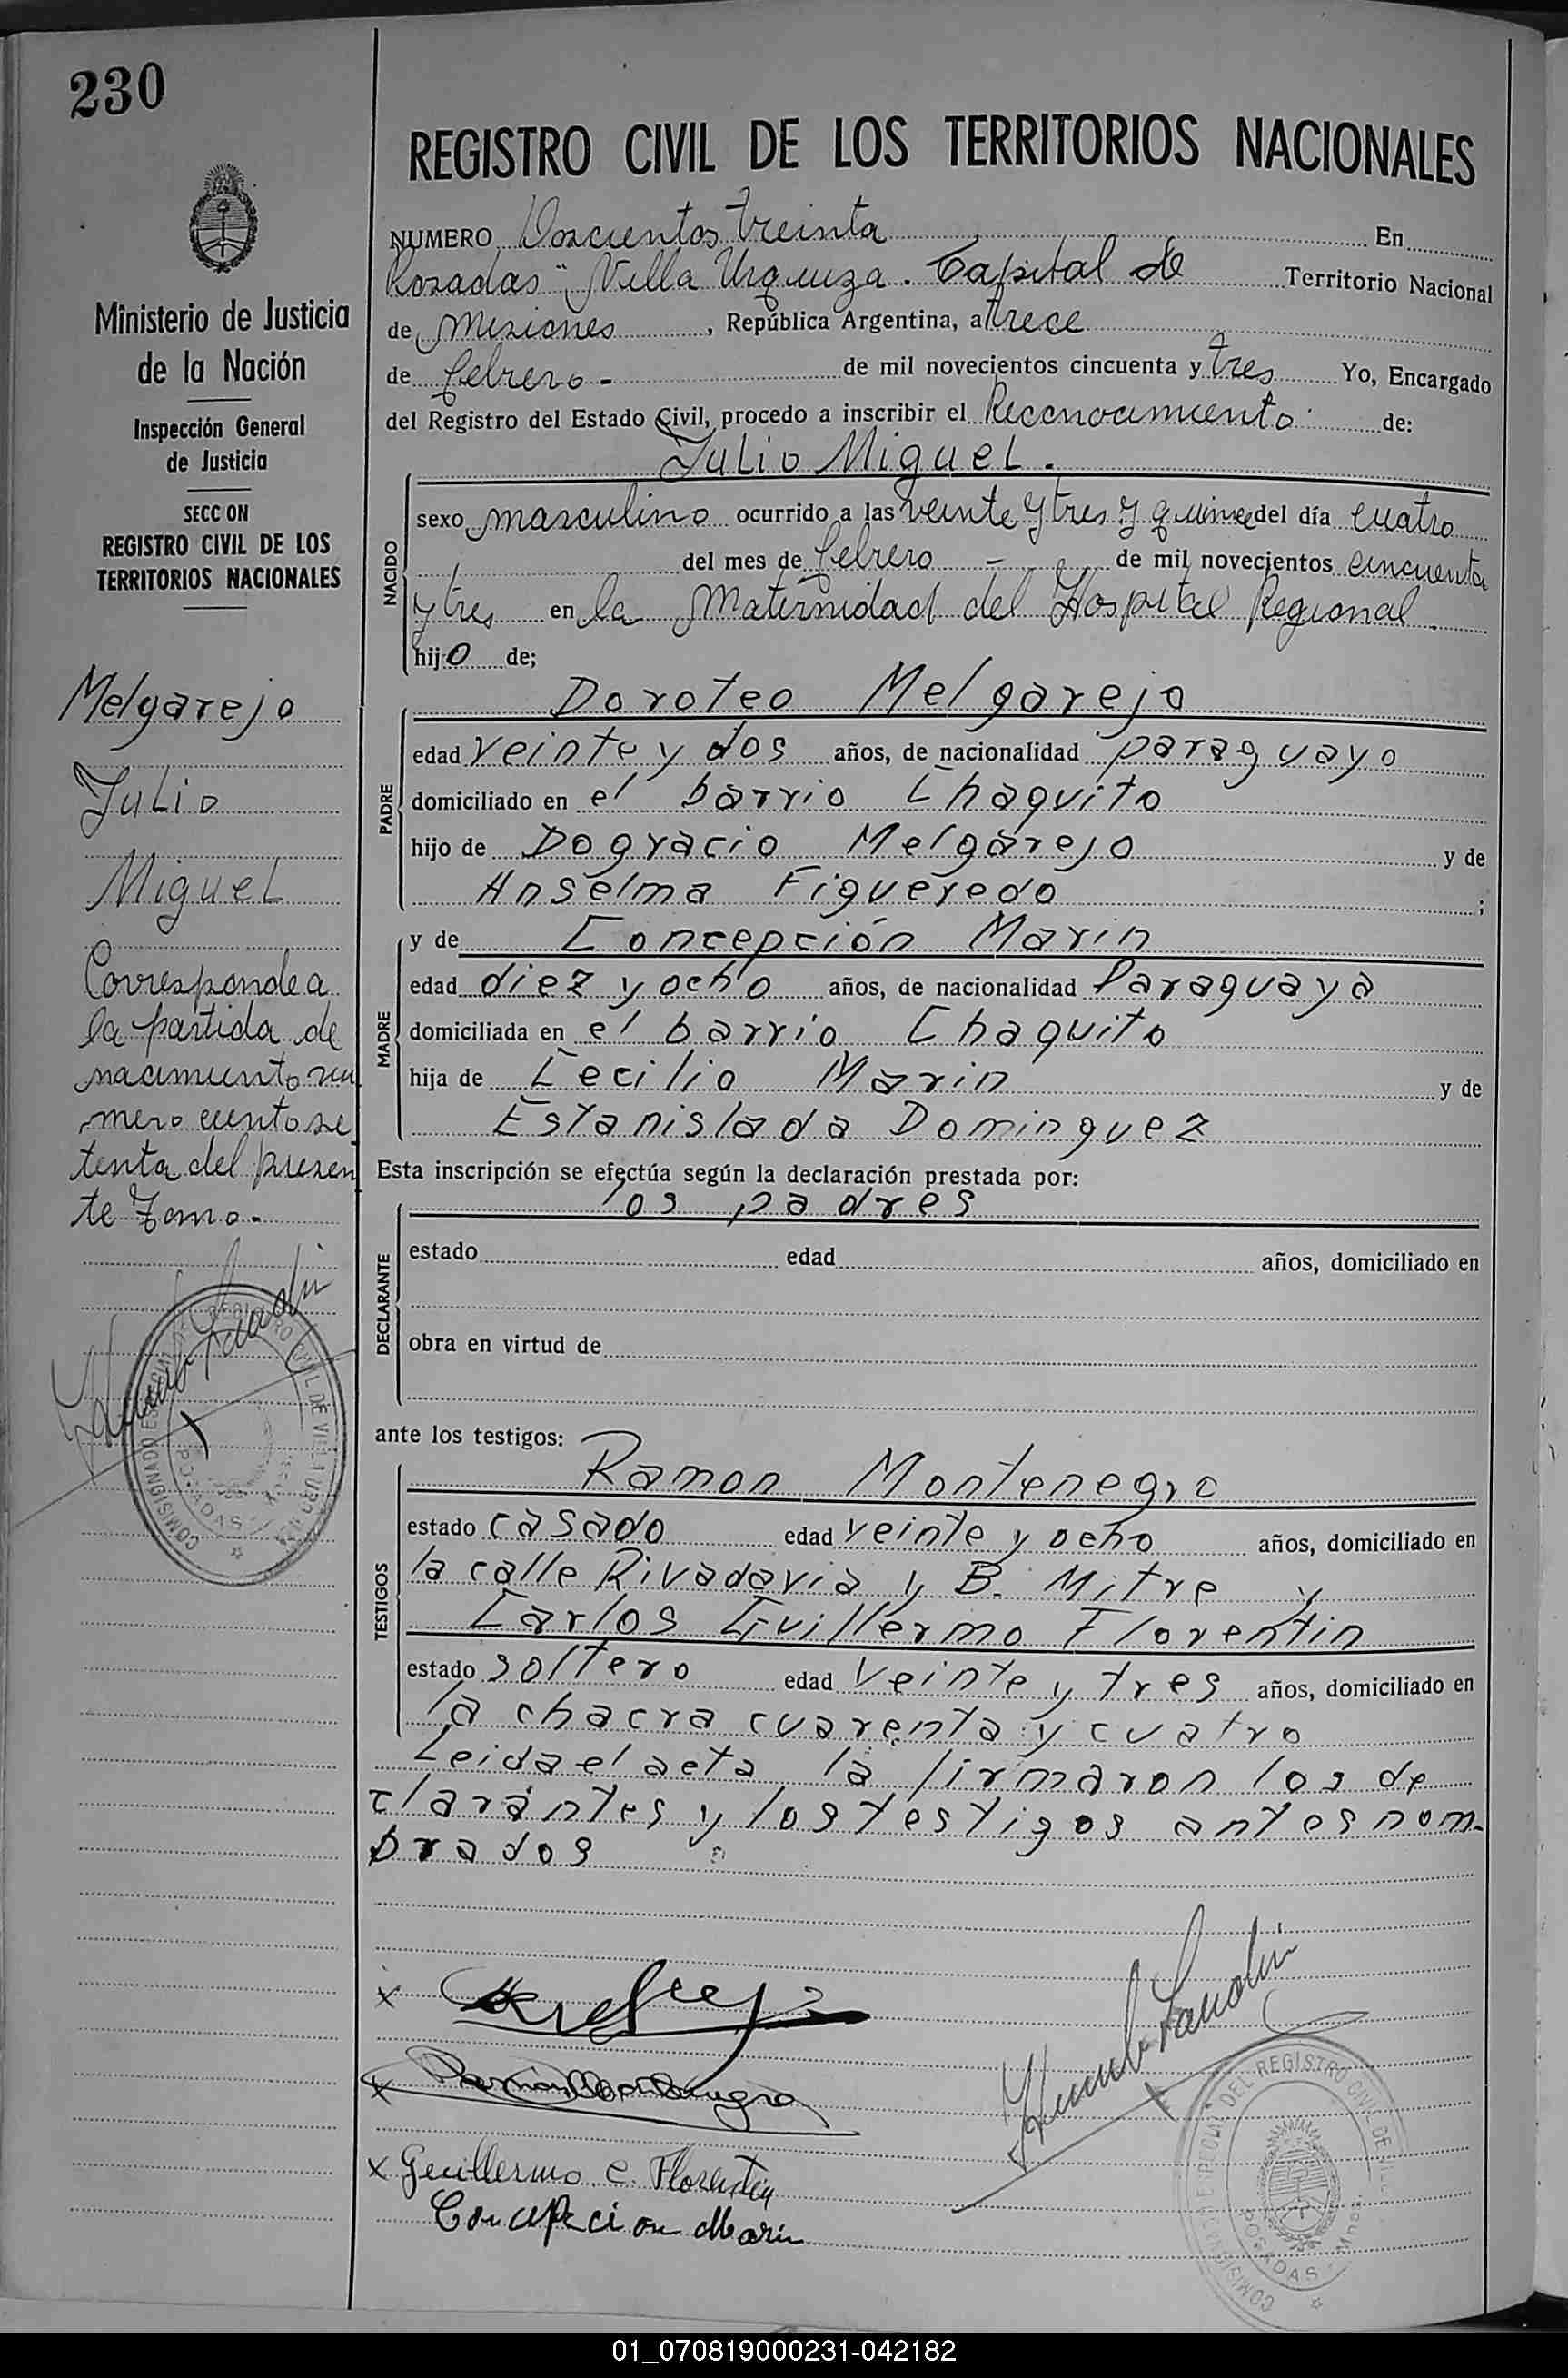 230
REGISTRO CIVIL DE LOS TERRITORIOS NACIONALES
Ministerio de Justicia
de la Nación
Inspección General
de Justicia
SECC ON
REGISTRO CIVIL DE LOS
TERRITORIOS NACIONALES
Melgarejo
Julio
Miguel
Corresponde a
la partida de
nacimiento nu
mero ciento se
tenta del presen
te Tomo.-
NUMERO Doscientos treinta En
Posadas "Villa Urquiza. Capital de Territorio Nacional
de Misiones, República Argentina, a trece
de febrero - de mil novecientos cincuenta y tres Yo, Encargado
del Registro del Estado Civil, procedo a inscribir el Reconocimiento de:
Julio Miguel.
NACIDO
sexo masculino ocurrido a las veinte y tres y quince del día cuatro
del mes de febrero - de mil novecientos cincuenta
y tres en la Maternidad del Hospital Regional.
hijo de;
PADRE
Doroteo Melgarejo
edad veinte y dos años, de nacionalidad paraguayo
domiciliado en el barrio Chaquito
hijo de Dogracio Melgarejo y de
Anselma Figueredo ;
MADRE
y de Concepción Marin
edad diez y ocho años, de nacionalidad Paraguaya
domiciliada en el barrio Chaquito
hija de Cecilio Marin y de
Estanislada Dominguez
Esta inscripción se efectúa según la declaración prestada por:
los padres
DECLARANTE
estado edad años, domiciliado en
obra en virtud de
ante los testigos:
TESTIGOS
Ramon Montenegro
estado casado edad veinte y ocho años, domiciliado en
la calle Rivadavia y B. Mitre y
Carlos Guillermo Florentin
estado soltero edad veinte y tres años, domiciliado en
la chacra cuarenta y cuatro
Leida el acta la firmaron los de
clarantes y los testigos antes nom-
brados
x
x Ramon Montenegro
x Guillermo C. Florentin
Concepcion Marin
REGISTRO CIVIL DE
POSADAS
01_070819000231-042182